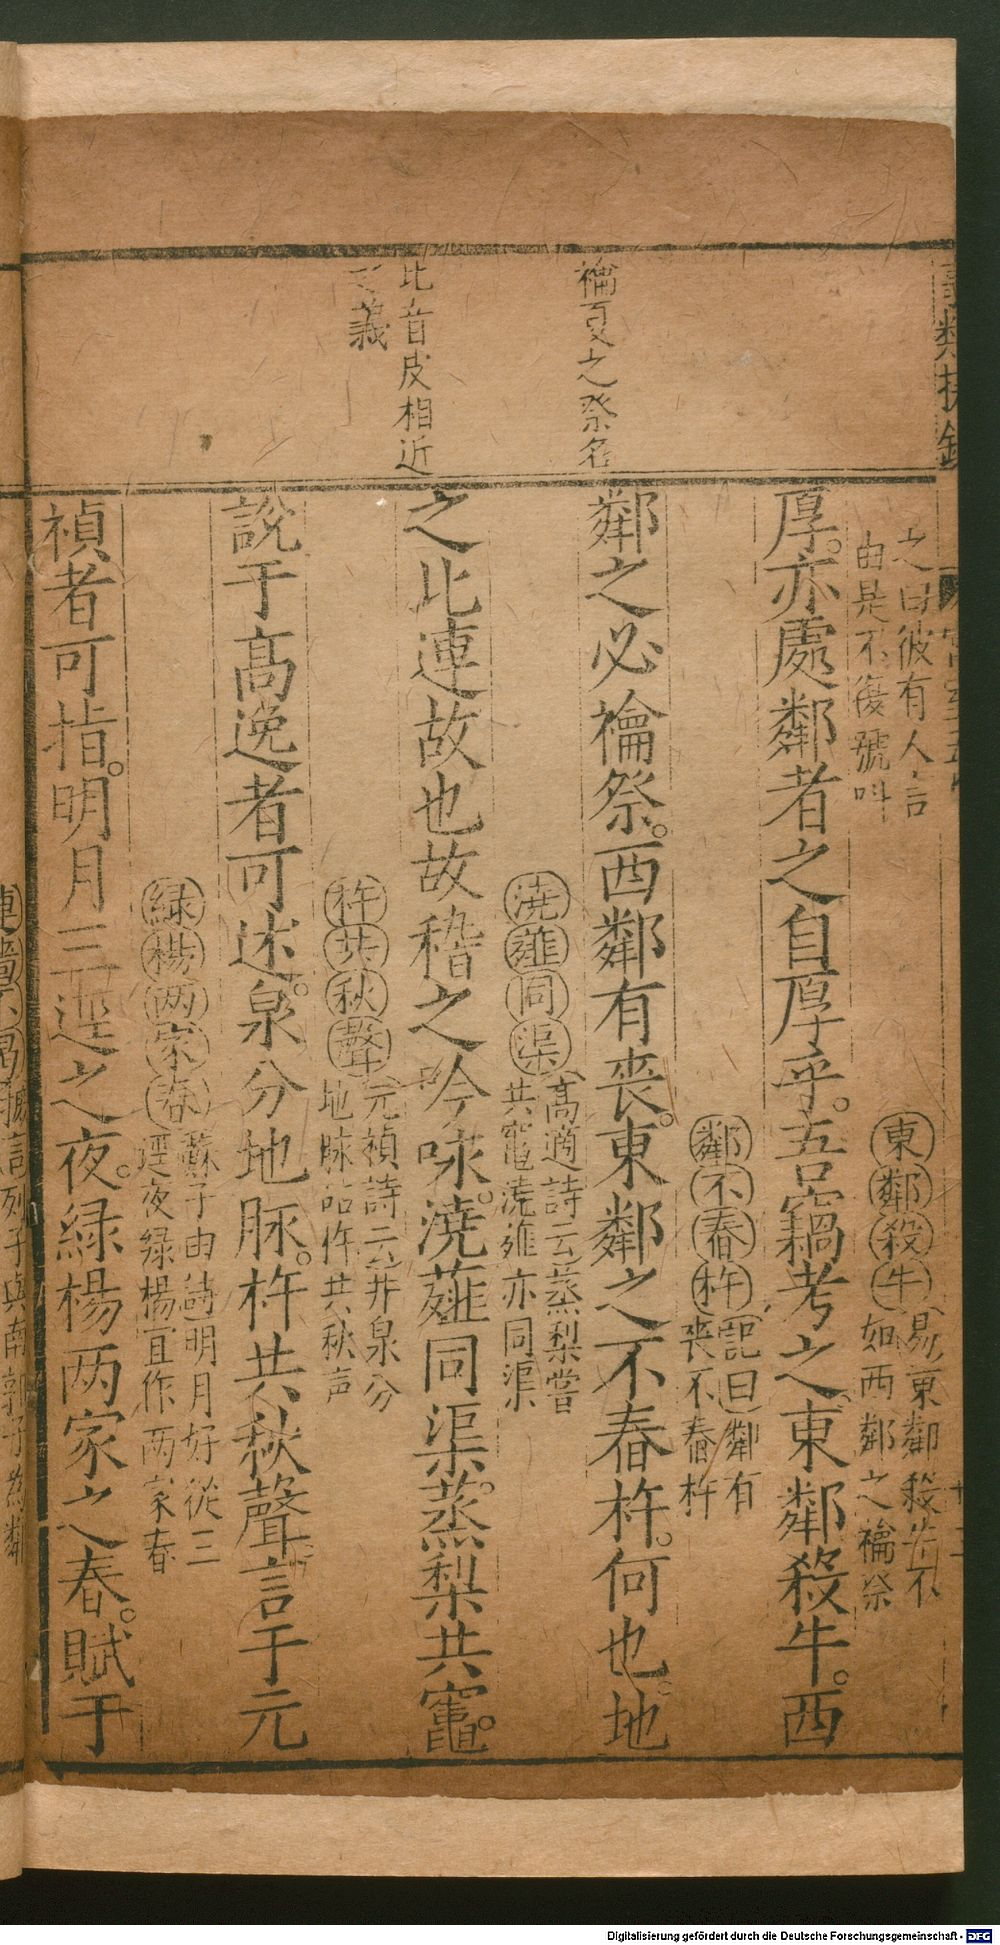 之曰彼有人言
由是不復號呌
東鄰殺牛
易東鄰殺牛不
如西鄰之禴祭
厚。亦處鄰者之自厚乎。吾竊考之。東鄰殺牛。西
鄰不舂杵
記曰鄰有
喪不舂杵
禴夏之祭名
鄰之必禴祭。西鄰有喪。東鄰之不舂杵。何也。地
澆薤同渠
髙適詩云蒸梨嘗
共竈澆薤亦同渠
比音皮相近
之義
之比連故也故稽之今咏。澆薤同渠。蒸梨共竈。
杵共秋聲
元禎詩云井泉分
地脉砧杵共秋声
說于髙逸者可述。泉分地脉。杵共秋聲言于元
緑楊两家春
蘇子由詩明月好從三
逕夜緑楊宜作两家春
禎者可指。明月三逕之夜。緑楊两家之春。賦于
列子與南郭子為鄰
Digitalisierung gefördert durch die Deutsche Forschungsgemeinschaft - DFG